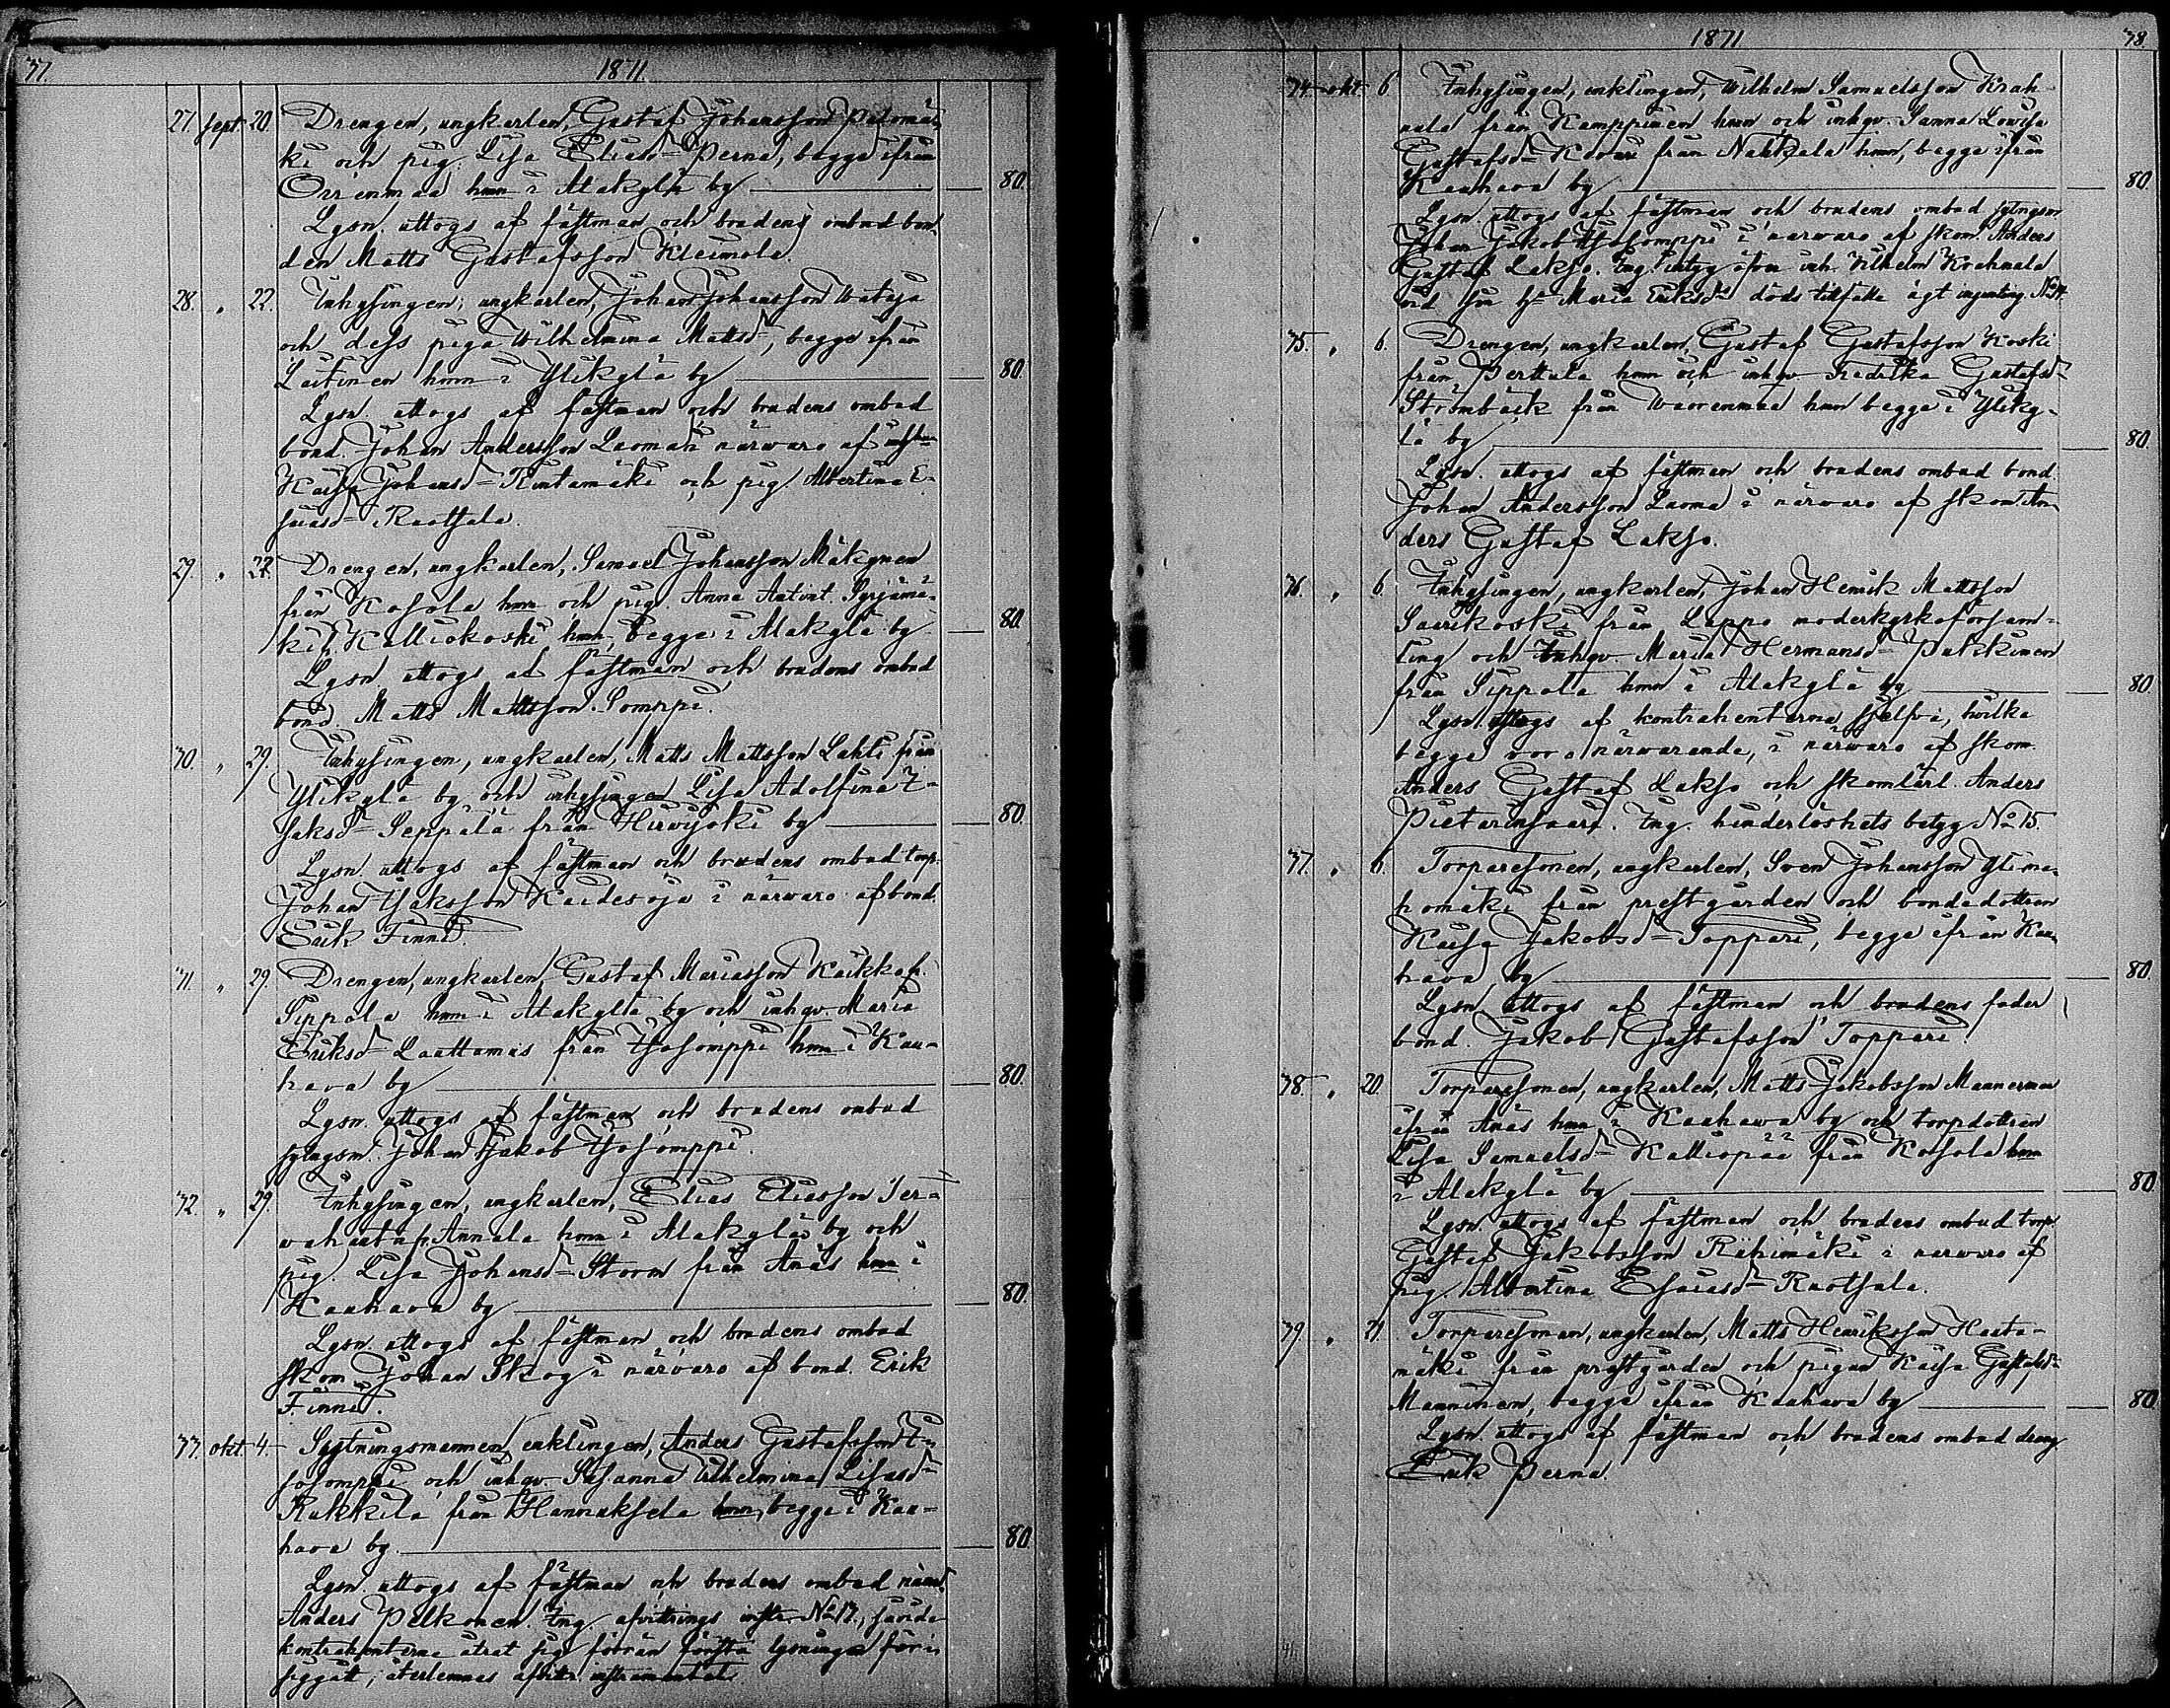 37.
1871.
27. sept. 20. Drengen, ungkarlen, Gustaf Johansson Palomä-
ki och pig. Lisa Eliasd=Perna, begge ifrån
Orrenmaa hmn i Alakylä by 80.
Lysn. uttogs af fästman och brudens ombud bon-
den Matts Gustafsson Kleimola.
28. " 22. Inhysingen, ungkarlen, Johan Johansson Wataja
och dess piga Wilhelmina Mattsd=, begge ifrån
Laitinen hmn i Ylikylä by 80.
Lysn. uttogs af fästman och brudens ombud
bond. Johan Andersson Luoma i närwaro af
Kaisa Johansd= Rintamäki och pig Albertina E-
saiasd= Ruotsala.
29. " 22. Drengen, ungkarlen, Samuel Johansson Mäkynen
från Kosola hmn och pig. Anna Antint. Syrjämä-
ki Kalliokoski hmn, begge i Alakylä by 80.
Lysn uttogs af fästman och brudens ombud
bond. Matts Mattsson Somppi.
30. " 29. Inhysingen, ungkarlen, Matts Mattsson Lahti från
Ylikylä by och inhysingen Lisa Adolfina I-
saksd= Seppälä från Hirvijoki by 80.
Lysn. uttogs af fästman och brudens ombud torp.
Johan Isaksson Kaidesoja i närwaro af bond.
Erik Finni.
31. " 29. Drengen, ungkarlen, Gustaf Mariasson Kaikko fr.
Sippola hmn i Alakylä by och inhqv. Maria
Eriksd= Luattamus från Isosomppi hmn i Kau-
hava by 80.
Lysn. uttogs af fästman och brudens ombud
sytngsm. Johan Jakob Isosomppi.
32. " 29. Inhysingen, ungkarlen, Elias Eliasson Ter-
wahauta fr. Annala hmn i Alakylä by och
pig. Lisa Johansd= Storm från Ånäs hmn i
Kauhava by 80.
Lysn. uttogs af fästman och brudens ombud
skom Johan Skog i närwaro af bond. Erik
Finni.
33. okt. 4. Sytningsmannen, enklingen, Anders Gustafsson I-
sosomppi och inhqv. Susanna Wilhelmina Lisasd=
Kukkila från Hannuksela hmn, begge i Kau-
hava by. 80.
Lysn. uttogs af fästman och brudens ombud
Anders Pelkonen. Ing. afvittrings instr. No 13, savida
kontrahenterna åtrat sig förrän första lysningen för-
siggått, återlemnas afvittr. instrumentet
1871
38.
34. okt. 6 Inhysingen, enklingen, Wilhelm Samuelsson Krah-
nala från Kamppinen hmn och inhqv. Sanna Lowisa
Gustafsd= Kovari från Nahkala hmn, begge ifrån
Kauhava by 80.
Lysn. uttogs af fästman och brudens ombud sytngsm
Johan Jakob Isosomppi i närwaro af skom. Anders
Gustaf Lakso. Ing. intyg öfver inh. Wilhelm Krahnala
vid sin h= Maria Eriksd= döds tillfälle ägt ingenting. No 14.
35. " 6. Drengen, ungkarlen, Gustaf Gustafsson Koski
från Perttula hmn och inhqv Fredrika Gustafsd=
Strömbäck från Wuorenmaa hmn begge i Yliky-
lä by 80.
Lysn. uttogs af fästman och brudens ombud bond.
Johan Andersson Luoma i närwaro af skom. An-
ders Gustaf Lakso.
36. " 6. Inhysingen, ungkarlen, Johan Henrik Mattsson
Saarikoski från Lappo moderkyrkoförsam-
ling och Inhqv. Maria Hermansd= Pukkinen
från Sippola hmn i Alakylä by 80
Lysn. uttogs af kontrahenterna sjelfva, hvilka
begge voro närwarande, i närwaro af skom.
Anders Gustaf Lakso och skomlärl. Anders
Pietarinsaari. Ing. hinderlöshets betyg No 15.
37. " 6. Torparesonen, ungkarlen, Sven Johansson Ylima-
homäki från prestgården och bondedottren
Kaisa Jakobsd= Toppari, begge ifrån Kau-
hava by 80.
Lysn. uttogs af fästman och brudens fader
bond. Jakob Gustafsson Toppari.
38. " 20. Torparesonen, ungkarlen, Matts Jakobsson Mannermaa
ifrån Ånäs hmn i Kauhava by och torpdottren
Lisa Samuelsd= Kalliopää från Kosola hmn
i Alakylä by 80
Lysn. uttogs af fästman och brudens ombud torp.
Gustaf Jakobsson Riihimäki i närwaro af
pig Albertina Esaiasd= Ruotsala.
39. " 21. Torparesonen, ungkarlen, Matts Henriksson Hauta-
mäki från prestgården och pigan Kaisa Gustafsd=
Manninen, begge ifrån Kauhava by 80
Lysn. uttogs af fästman och brudens ombud dreng
Erik Perna.